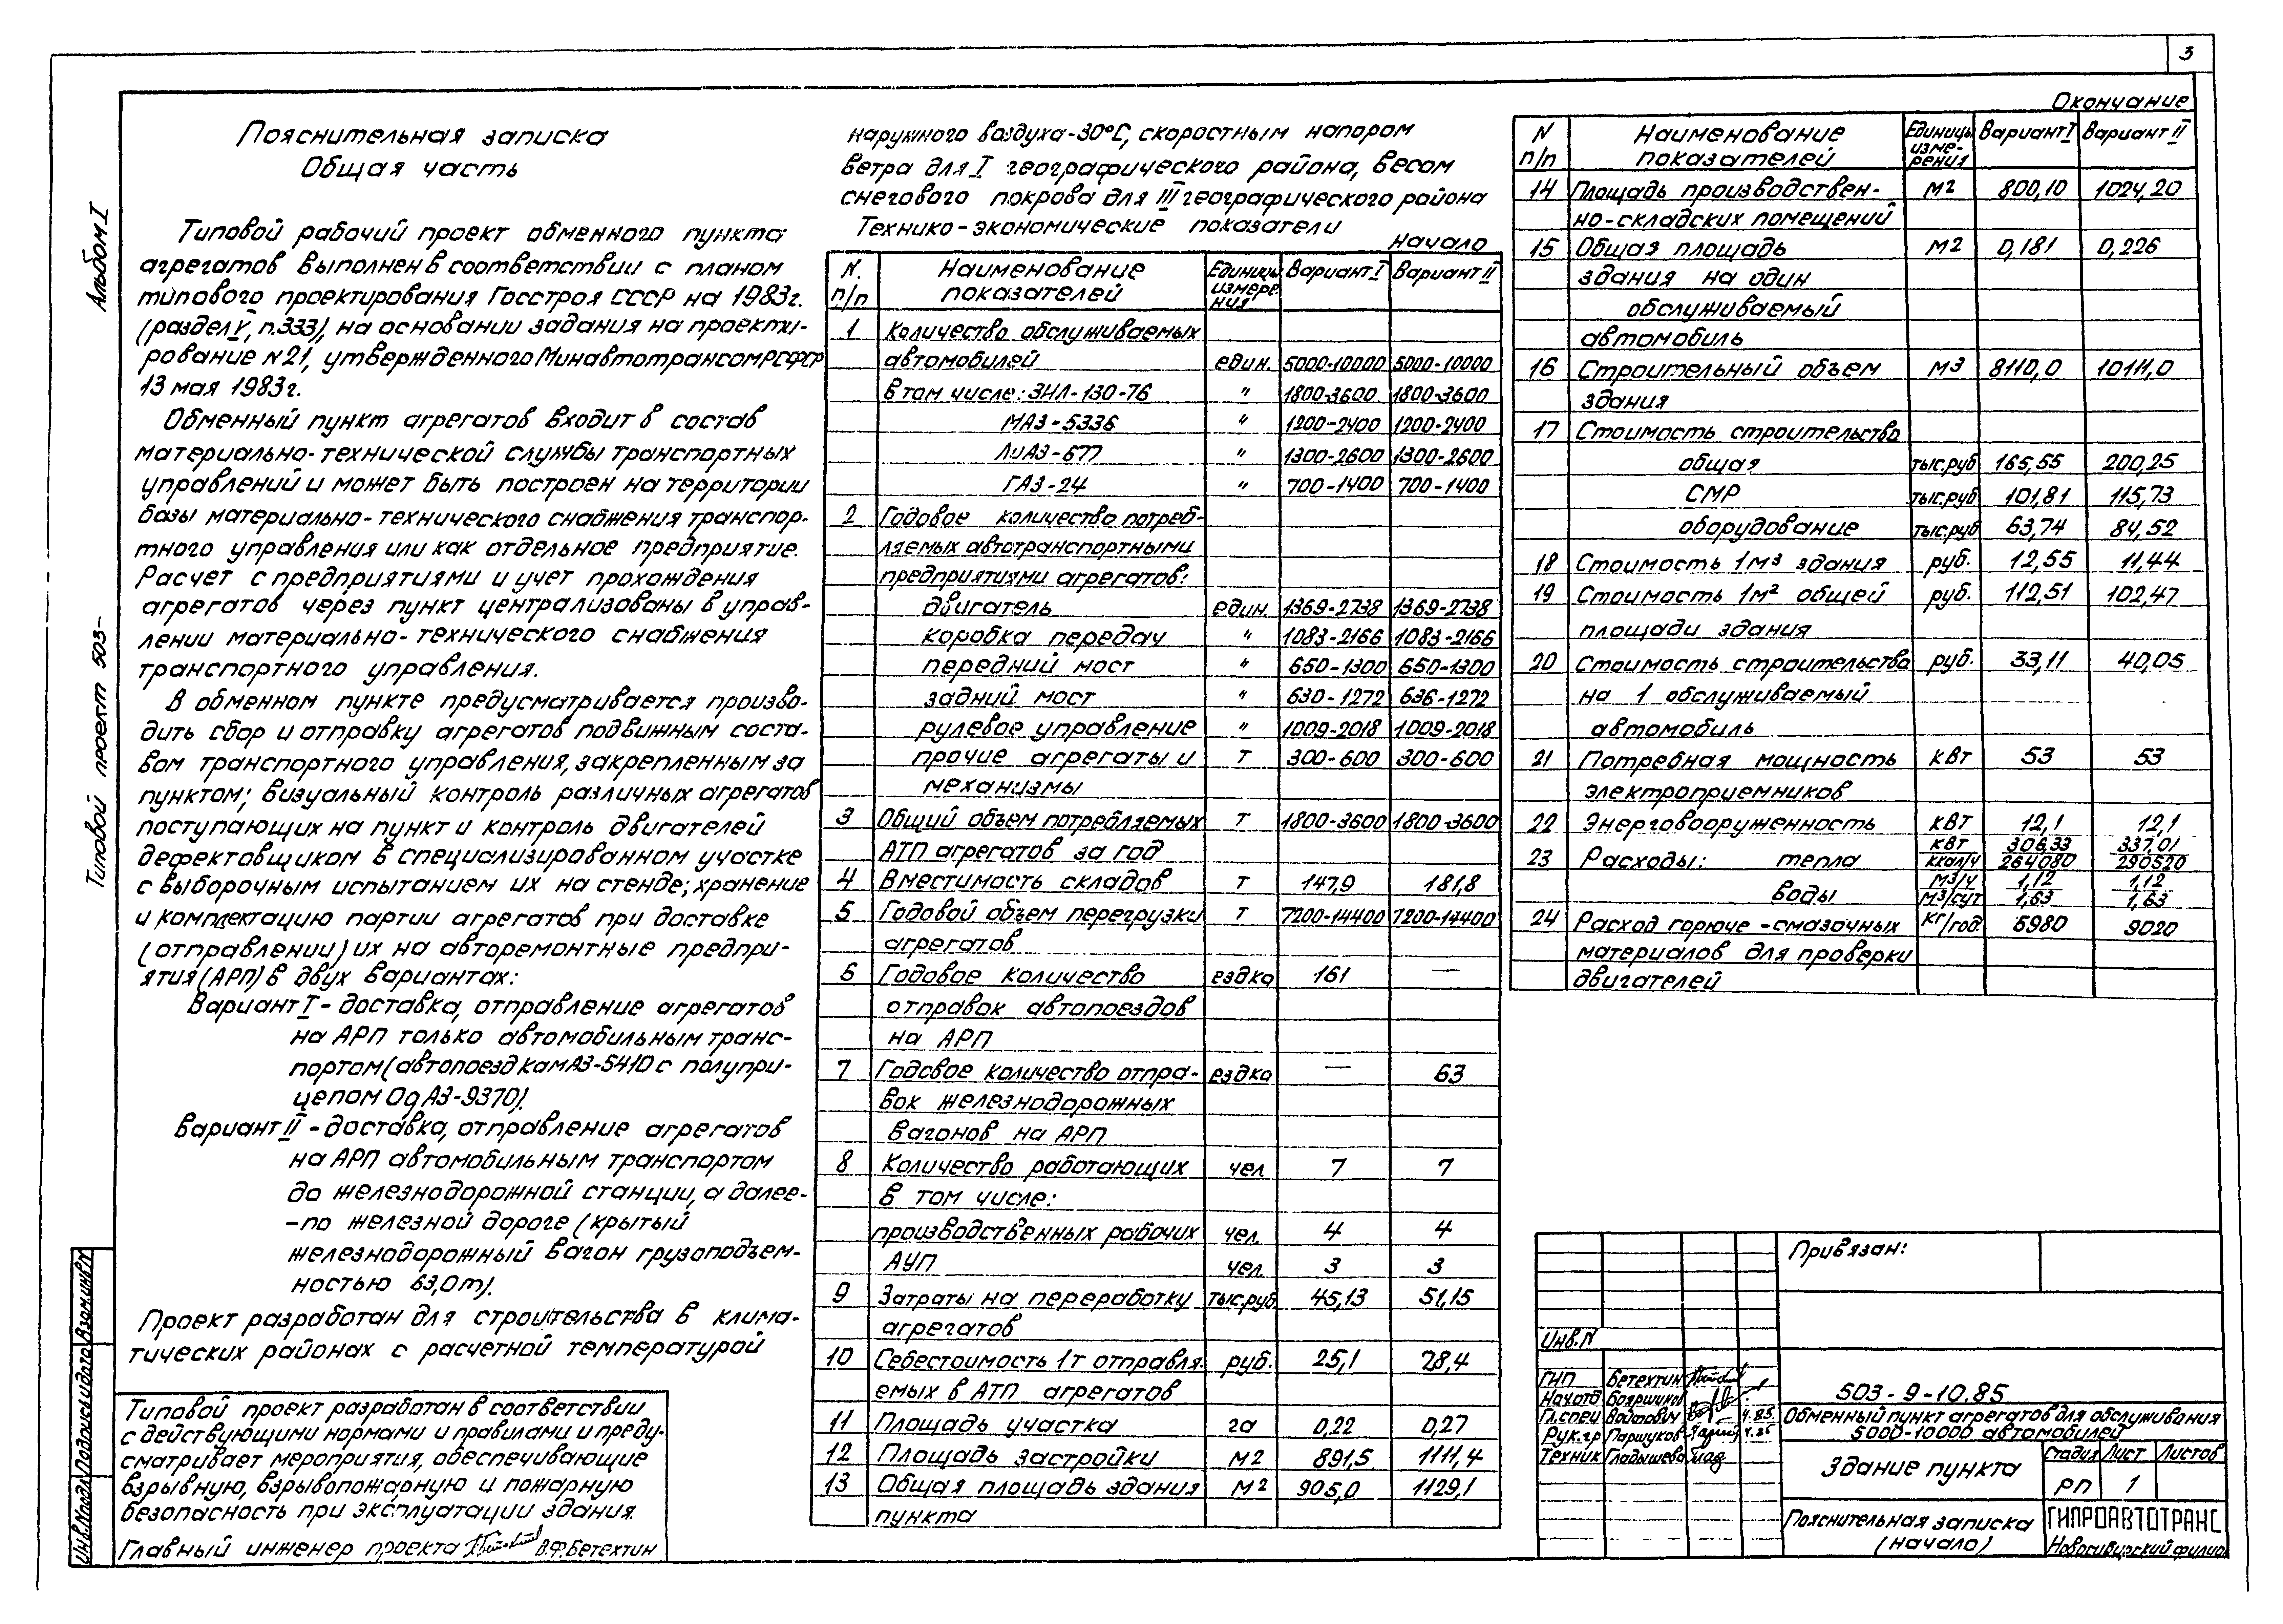 3
Альбом I
Типовой проект 503-
Пояснительная записка
Общая часть
Типовой рабочий проект обменного пункта
агрегатов выполнен в соответствии с планом
типового проектирования Госстроя СССР на 1983г.
(раздел V, п.333), на основании задания на проекти-
рование N21, утвержденного Минавтотрансом РСФСР
13 мая 1983г.
Обменный пункт агрегатов входит в состав
материально-технической службы транспортных
управлений и может быть построен на территории
базы материально-технического снабжения транспор-
тного управления или как отдельное предприятие.
Расчет с предприятиями и учет прохождения
агрегатов через пункт централизованы в управ-
лении материально-технического снабжения
транспортного управления.
В обменном пункте предусматривается произво-
дить сбор и отправку агрегатов подвижным соста-
вом транспортного управления, закрепленным за
пунктом; визуальный контроль различных агрегатов
поступающих на пункт и контроль двигателей
дефектовщиком в специализированном участке
с выборочным испытанием их на стенде; хранение
и комплектацию партии агрегатов при доставке
(отправлении) их на авторемонтные предпри-
ятия (АРП) в двух вариантах:
Вариант I - доставка, отправление агрегатов
на АРП только автомобильным транс-
портом (автопоезд КамАЗ-5410 с полупри-
цепом ОдАЗ-9370).
Вариант II - доставка, отправление агрегатов
на АРП автомобильным транспортом
до железнодорожной станции, а далее-
-по железной дороге (крытый
железнодорожный вагон грузоподъем-
ностью 63,0т).
Проект разработан для строительства в клима-
тических районах с расчетной температурой
Типовой проект разработан в соответствии
с действующими нормами и правилами и преду-
сматривает мероприятия, обеспечивающие
взрывную, взрывопожарную и пожарную
безопасность при эксплуатации здания.
Главный инженер проекта В.Ф.Бетехтин
Инв.Nподл. Подпись и дата Взам.инв.N
наружного воздуха-30°С, скоростным напором
ветра для I географического района, весом
снегового покрова для III географического района
Технико-экономические показатели
Начало
N. п/п Наименование показателей Единицы измерения Вариант I Вариант II
1 Количество обслуживаемых
автомобилей един. 5000-10000 5000-10000
в том числе: ЗИЛ-130-76 " 1800-3600 1800-3600
МАЗ-5336 " 1200-2400 1200-2400
ЛиАЗ-677 " 1300-2600 1300-2600
ГАЗ-24 " 700-1400 700-1400
2 Годовое количество потреб-
ляемых автотранспортными
предприятиями агрегатов:
двигатель един. 1369-2738 1369-2738
коробка передач " 1083-2166 1083-2166
передний мост " 650-1300 650-1300
задний мост " 630-1272 636-1272
рулевое управление " 1009-2018 1009-2018
прочие агрегаты и т 300-600 300-600
механизмы
3 Общий объем потребляемых т 1800-3600 1800-3600
АТП агрегатов за год
4 Вместимость складов т 147,9 181,8
5 Годовой объем перегрузки т 7200-14400 7200-14400
агрегатов
6 Годовое количество ездка 161 —
отправок автопоездов
на АРП
7 Годовое количество отпра- ездка — 63
вок железнодорожных
вагонов на АРП
8 Количество работающих чел 7 7
в том числе:
производственных рабочих чел. 4 4
АУП чел. 3 3
9 Затраты на переработку тыс.руб. 45,13 51,15
агрегатов
10 Себестоимость 1т отправля- руб. 25,1 28,4
емых в АТП агрегатов
11 Площадь участка га 0,22 0,27
12 Площадь застройки м2 891,5 1111,4
13 Общая площадь здания м2 905,0 1129,1
пункта
Окончание
N п/п Наименование показателей Единицы изме- рения Вариант I Вариант II
14 Площадь производствен- м2 800,10 1024,20
но-складских помещений
15 Общая площадь м2 0,181 0,226
здания на один
обслуживаемый
автомобиль
16 Строительный объем м3 8110,0 10111,0
здания
17 Стоимость строительства
общая тыс.руб 165,55 200,25
СМР тыс.руб 101,81 115,73
оборудование тыс.руб 63,74 84,52
18 Стоимость 1м3 здания руб. 12,55 11,44
19 Стоимость 1м2 общей руб. 112,51 102,47
площади здания
20 Стоимость строительства руб. 33,11 40,05
на 1 обслуживаемый
автомобиль
21 Потребная мощность квт 53 53
электроприемников
22 Энерговооруженность квт 12,1 12,1
23 Расходы: тепла квт 306,33 337,01
ккал/ч 264080 290520
воды м3/ч 1,12 1,12
м3/сут 1,63 1,63
24 Расход горюче-смазочных кг/год. 6980 9020
материалов для проверки
двигателей
Привязан:
Инв.N
ГИП Бетехтин
Нач.отд Бояршинов
Гл.спец Войтович 4.85
Рук.гр Паршуков 4.85
Техник Гладышева
503-9-10.85
Обменный пункт агрегатов для обслуживания
5000-10000 автомобилей
Здание пункта
Стадия Лист Листов
РП 1
Пояснительная записка
(начало)
ГИПРОАВТОТРАНС
Новосибирский филиал